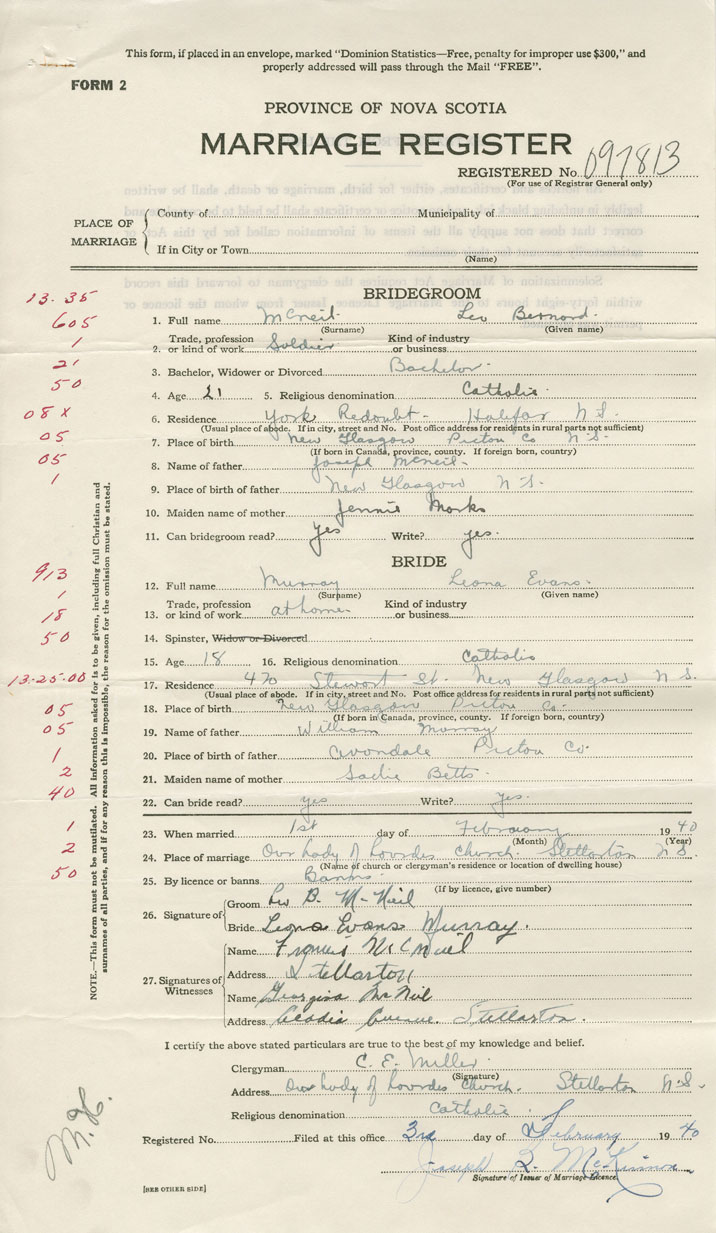 This form, if placed in an envelope, marked "Dominion Statistics—Free, penalty for improper use $300," and
properly addressed will pass through the Mail "FREE".
FORM 2
PROVINCE OF NOVA SCOTIA
MARRIAGE REGISTER
REGISTERED No. 097813
(For use of Registrar General only)
PLACE OF MARRIAGE
County of Municipality of
If in City or Town
(Name)
BRIDEGROOM
13-35
605
1. Full name McNeil Leo Bernard
(Surname) (Given name)
1
2. Trade, profession or kind of work Soldier Kind of industry or business
21
3. Bachelor, Widower or Divorced Bachelor
50
4. Age 21 5. Religious denomination Catholic
08 x
6. Residence York Redoubt - Halifax N.S.
(Usual place of abode. If in city, street and No. Post office address for residents in rural parts not sufficient)
05
7. Place of birth New Glasgow Pictou Co N.S.
(If born in Canada, province, county. If foreign born, country)
05
8. Name of father Joseph McNeil
1
9. Place of birth of father New Glasgow N S.
10. Maiden name of mother Jennie Marks
11. Can bridegroom read? Yes Write? yes.
BRIDE
913
12. Full name Murray Leona Evans
(Surname) (Given name)
1
13. Trade, profession or kind of work at home Kind of industry or business
18
50
14. Spinster, Widow or Divorced
15. Age 18 16. Religious denomination Catholic
13-25-00
17. Residence 470 Stewart St. New Glasgow N S.
(Usual place of abode. If in city, street and No. Post office address for residents in rural parts not sufficient)
05
18. Place of birth New Glasgow Pictou Co.
(If born in Canada, province, county. If foreign born, country)
05
19. Name of father William Murray
1
20. Place of birth of father Avondale Pictou Co.
2
21. Maiden name of mother Sadie Betts
40
22. Can bride read? yes Write? yes.
1
23. When married 1st day of February 1940
(Month) (Year)
2
24. Place of marriage Our Lady of Lourdes Church Stellarton N S.
(Name of church or clergyman's residence or location of dwelling house)
50
25. By licence or banns Banns
(If by licence, give number)
26. Signature of
Groom Leo B. McNeil
Bride Leona Evans Murray.
27. Signatures of Witnesses
Name McNeil
Address Stellarton
Name Georgina McNeil
Address Acadia Avenue. Stellarton.
NOTE.—This form must not be mutilated. All information asked for is to be given, including full Christian and
surnames of all parties, and if for any reason this is impossible, the reason for the omission must be stated.
I certify the above stated particulars are true to the best of my knowledge and belief.
Clergyman C. E. Miller
(Signature)
Address Our Lady of Lourdes Church. Stellarton N.S.
Religious denomination Catholic
Registered No. Filed at this office 3rd day of February 1940
Joseph McKinnon
Signature of Issuer of Marriage Licence.
[SEE OTHER SIDE]